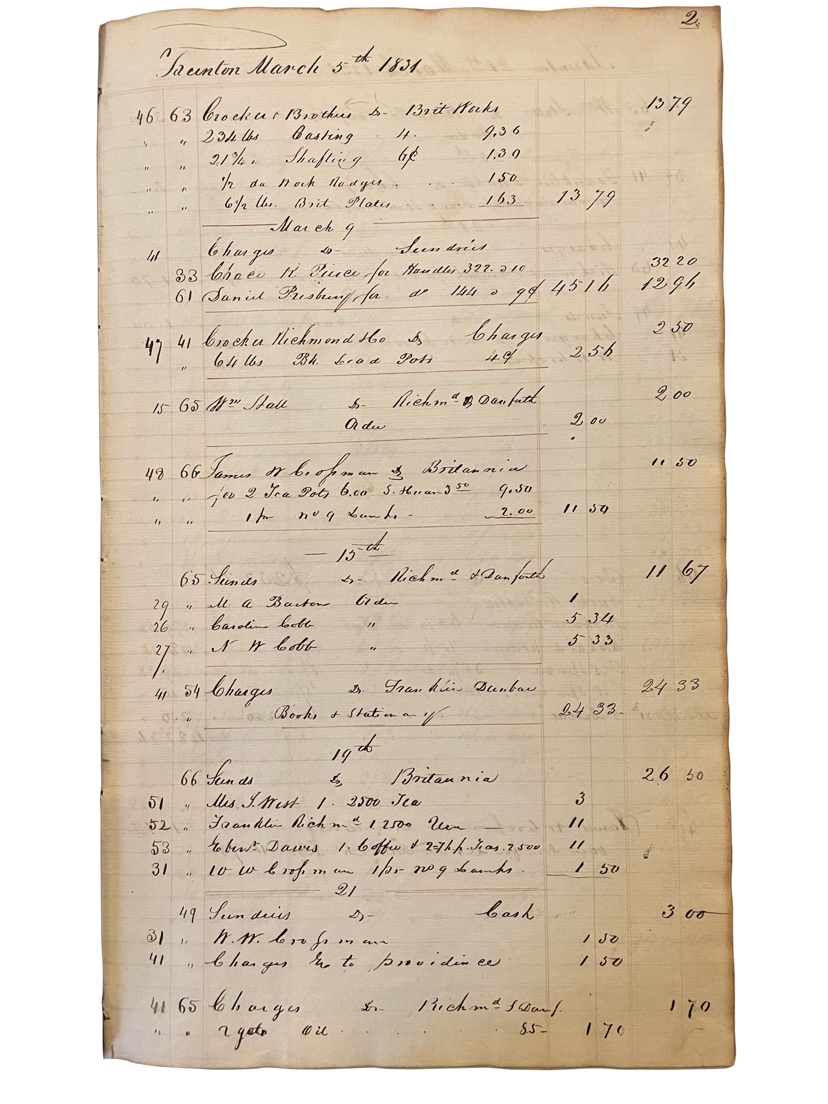 2.
Taunton March 5th 1831
46 63 Crocker & Brothers Dr Brit Works 13 79
" " 234 lbs Casting 4. 9.36
" " 21 3/4 " Shafting 6¢ 1.30
" " 1/2 da Work 150
" " 6 1/2 lbs. Brit Plates 163 13 79
March 9
41 Charges Dr Sundries
33 Chace K. Peirce for Handles 322. a 10 32 20
61 Daniel Presbury for do 144 a 9¢ 45 16 12 96
47 41 Crocker Richmond & Co Dr Charges 2 50
" 64 lbs Bk. Lead Pots 4¢ 2 56
15 65 Wm Hall Dr Richmd & Danforth 2 00
Order 2 00
48 66 James W Crossman Dr Britannia 11 50
" " for 2 Tea Pots 6.00 3 50 9.50
" " 1 pr no 9 Lamps - 2.00 11 50
— 15th
65 Sunds Dr Richmd & Danforth 11 67
29 " M A Barton Order 1
26 " Caroline Cobb " 5 34
27 " N W Cobb " 5 33
41 54 Charges Dr Franklin Dunbar 24 33
" Books & Stationary 24 33
19th
66 Sunds Dr Britannia 26 50
51 " Mrs J. West 1. 2500 Tea 3
52 " Franklin Richmd 1. 2500 Urn 11
53 " Ebenr Dawes 1. Coffee & 2 Teas. 2500 11
31 " W W Crossman 1 pr no 9 Lamps. 1 50
21
49 Sundries Dr Cash 3 00
31 " W. W. Crossman 1 50
41 " Charges to providince 1 50
41 65 Charges Dr Richmd & Danf. 1 70
" " 2 gals Oil 85 1 70